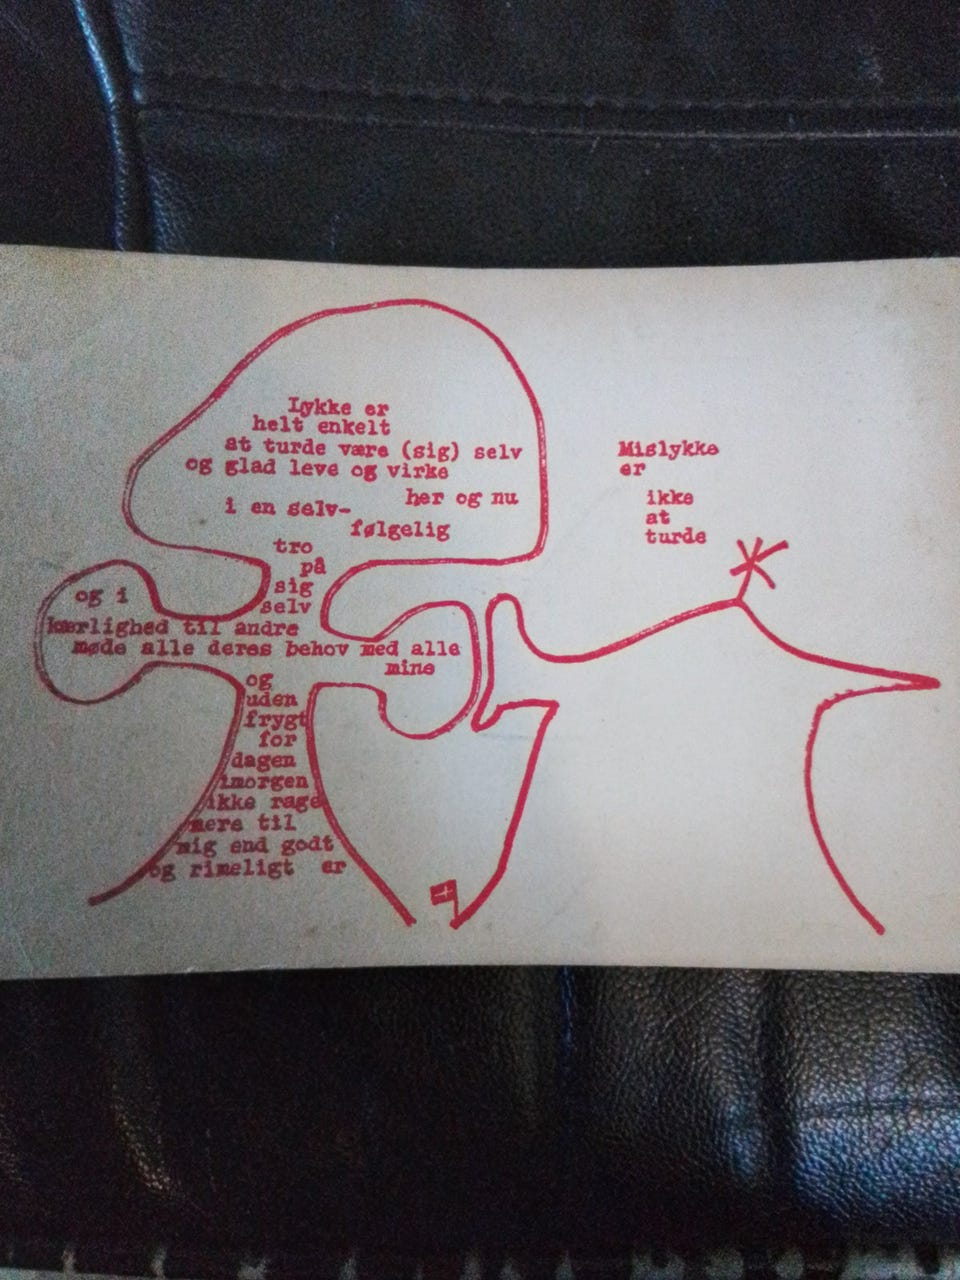 Lykke er
helt enkelt
at turde være (sig) selv
og glad leve og virke
her og nu
i en selv-
følgelig
tro
på
sig
selv
og i
kærlighed til andre
møde alle deres behov med alle
mine
og
uden
frygt
for
dagen
imorgen
ikke rage
mere til
mig end godt
og rimeligt er
Mislykke
er
ikke
at
turde